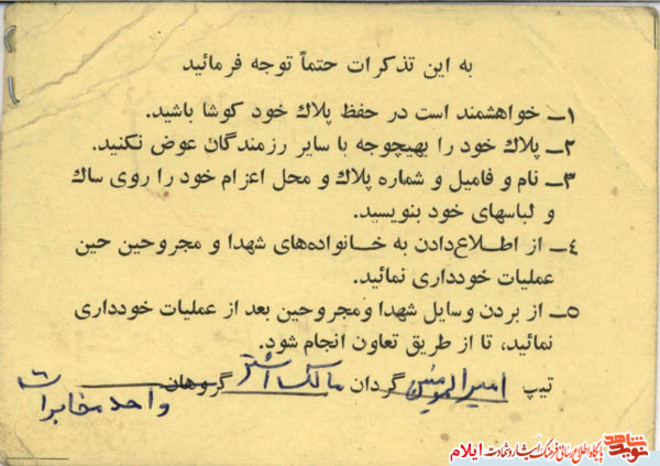 به این تذکرات حتماً توجه فرمائید
۱ــ خواهشمند است در حفظ پلاك خود کوشا باشید.
۲ــ پلاك خود را بهیچوجه با سایر رزمندگان عوض نکنید.
۳ــ نام و فامیل و شماره پلاك و محل اعزام خود را روی ساك
و لباسهای خود بنویسید.
٤ــ از اطلاع‌دادن به خانواده‌های شهدا و مجروحین حین
عملیات خودداری نمائید.
٥ــ از بردن وسایل شهدا ومجروحین بعد از عملیات خودداری
نمائید، تا از طریق تعاون انجام شود.
تیپ امیرالمومنین گردان مالک اشتر گروهان
واحد مخابرات
نوید شاهد پایگاه اطلاع رسانی فرهنگ ایثار و شهادت ایلام